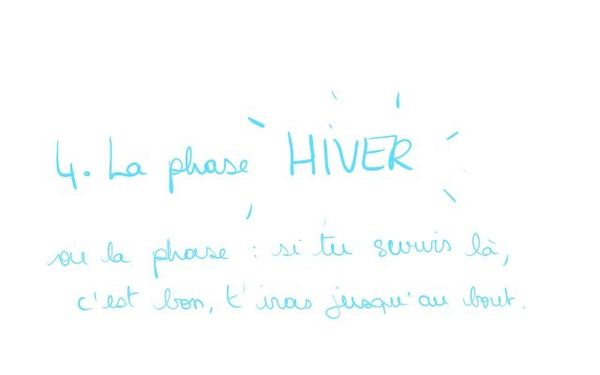 4. La phase HIVER
ou la phase : si tu survis là,
c'est bon, t'iras jusqu'au bout.